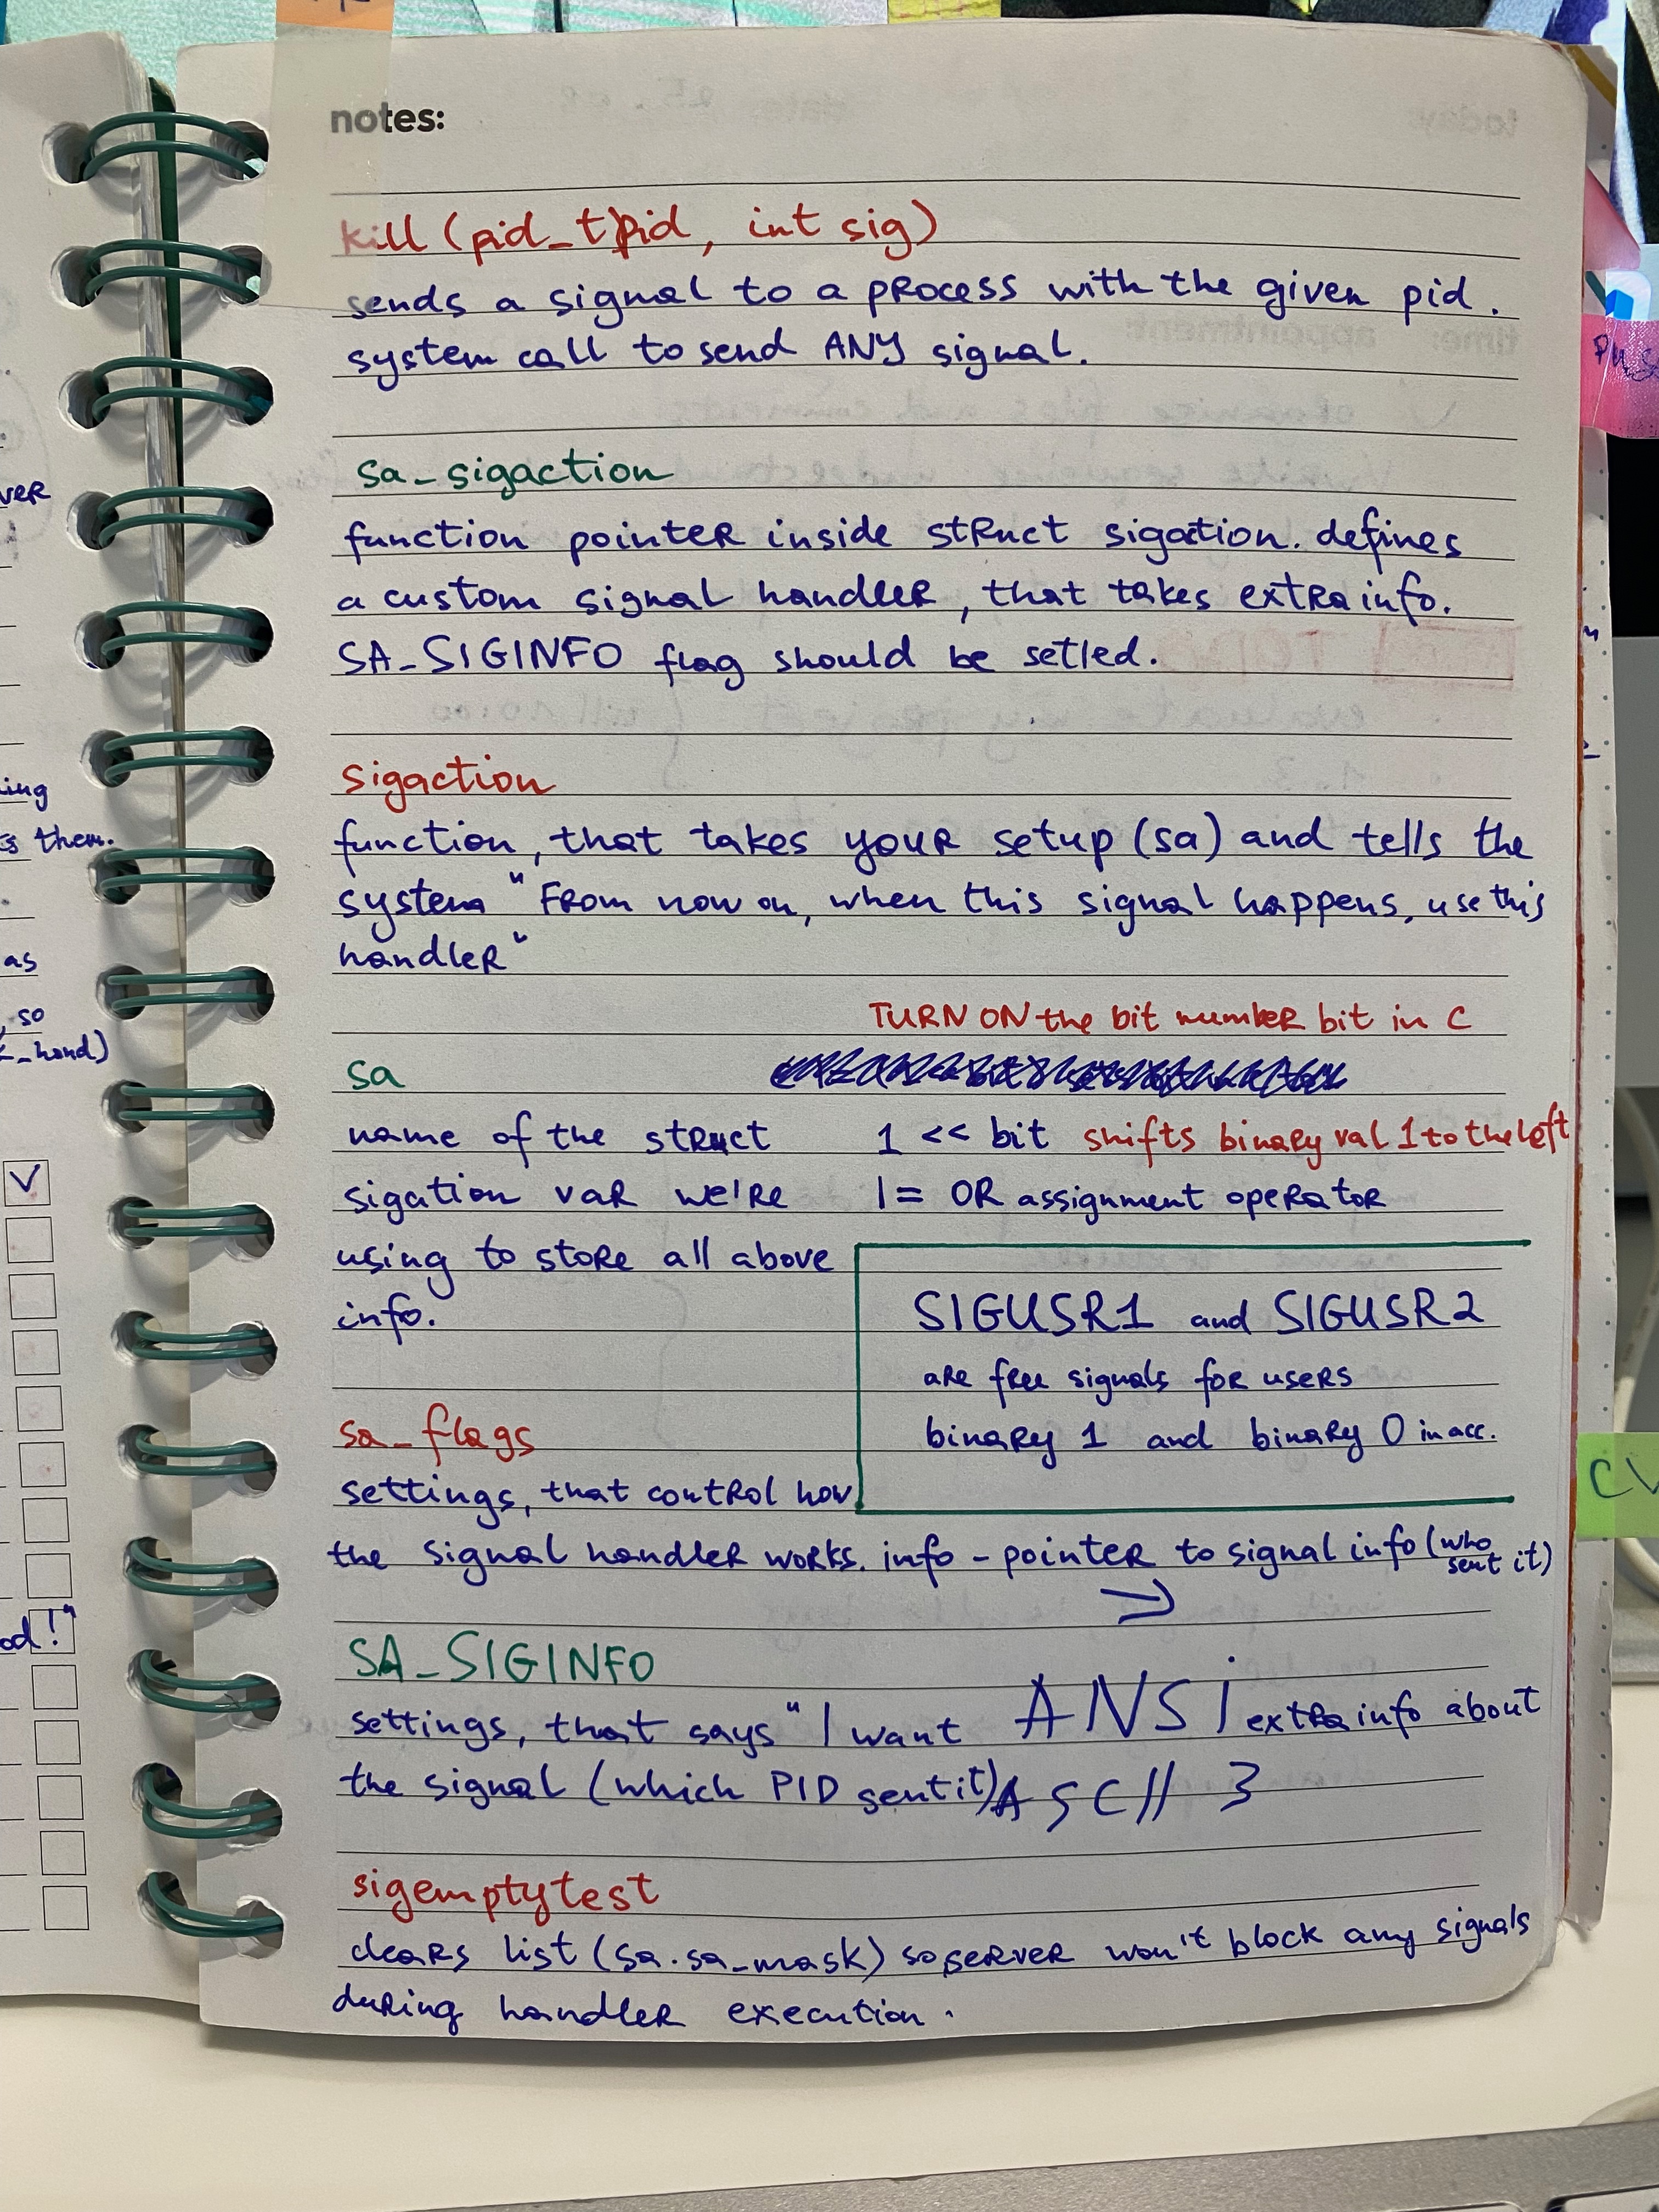 notes:
kill (pid_t pid, int sig)
sends a signal to a process with the given pid.
system call to send ANY signal.
sa_sigaction
function pointer inside struct sigaction. defines
a custom signal handler, that takes extra info.
SA_SIGINFO flag should be setled.
sigaction
function, that takes your setup (sa) and tells the
system "From now on, when this signal happens, use this
handler"
TURN ON the bit number bit in C
sa
name of the struct
sigation var we're
using to store all above
info.
1 << bit shifts binary val 1 to the left
|= OR assignment operator
SIGUSR1 and SIGUSR2
are free signals for users
binary 1 and binary 0 in acc.
sa_flags
settings, that control how
the signal handler works. info - pointer to signal info (who
sent it)
SA_SIGINFO
settings, that says "I want extra info about
the signal (which PID sent it)
ANSI
ASCII 3
sigemptytest
clears list (sa.sa_mask) so server won't block any signals
during handler execution.
ver
ing
s them.
as
, so
_hand)
V
od!"
CV